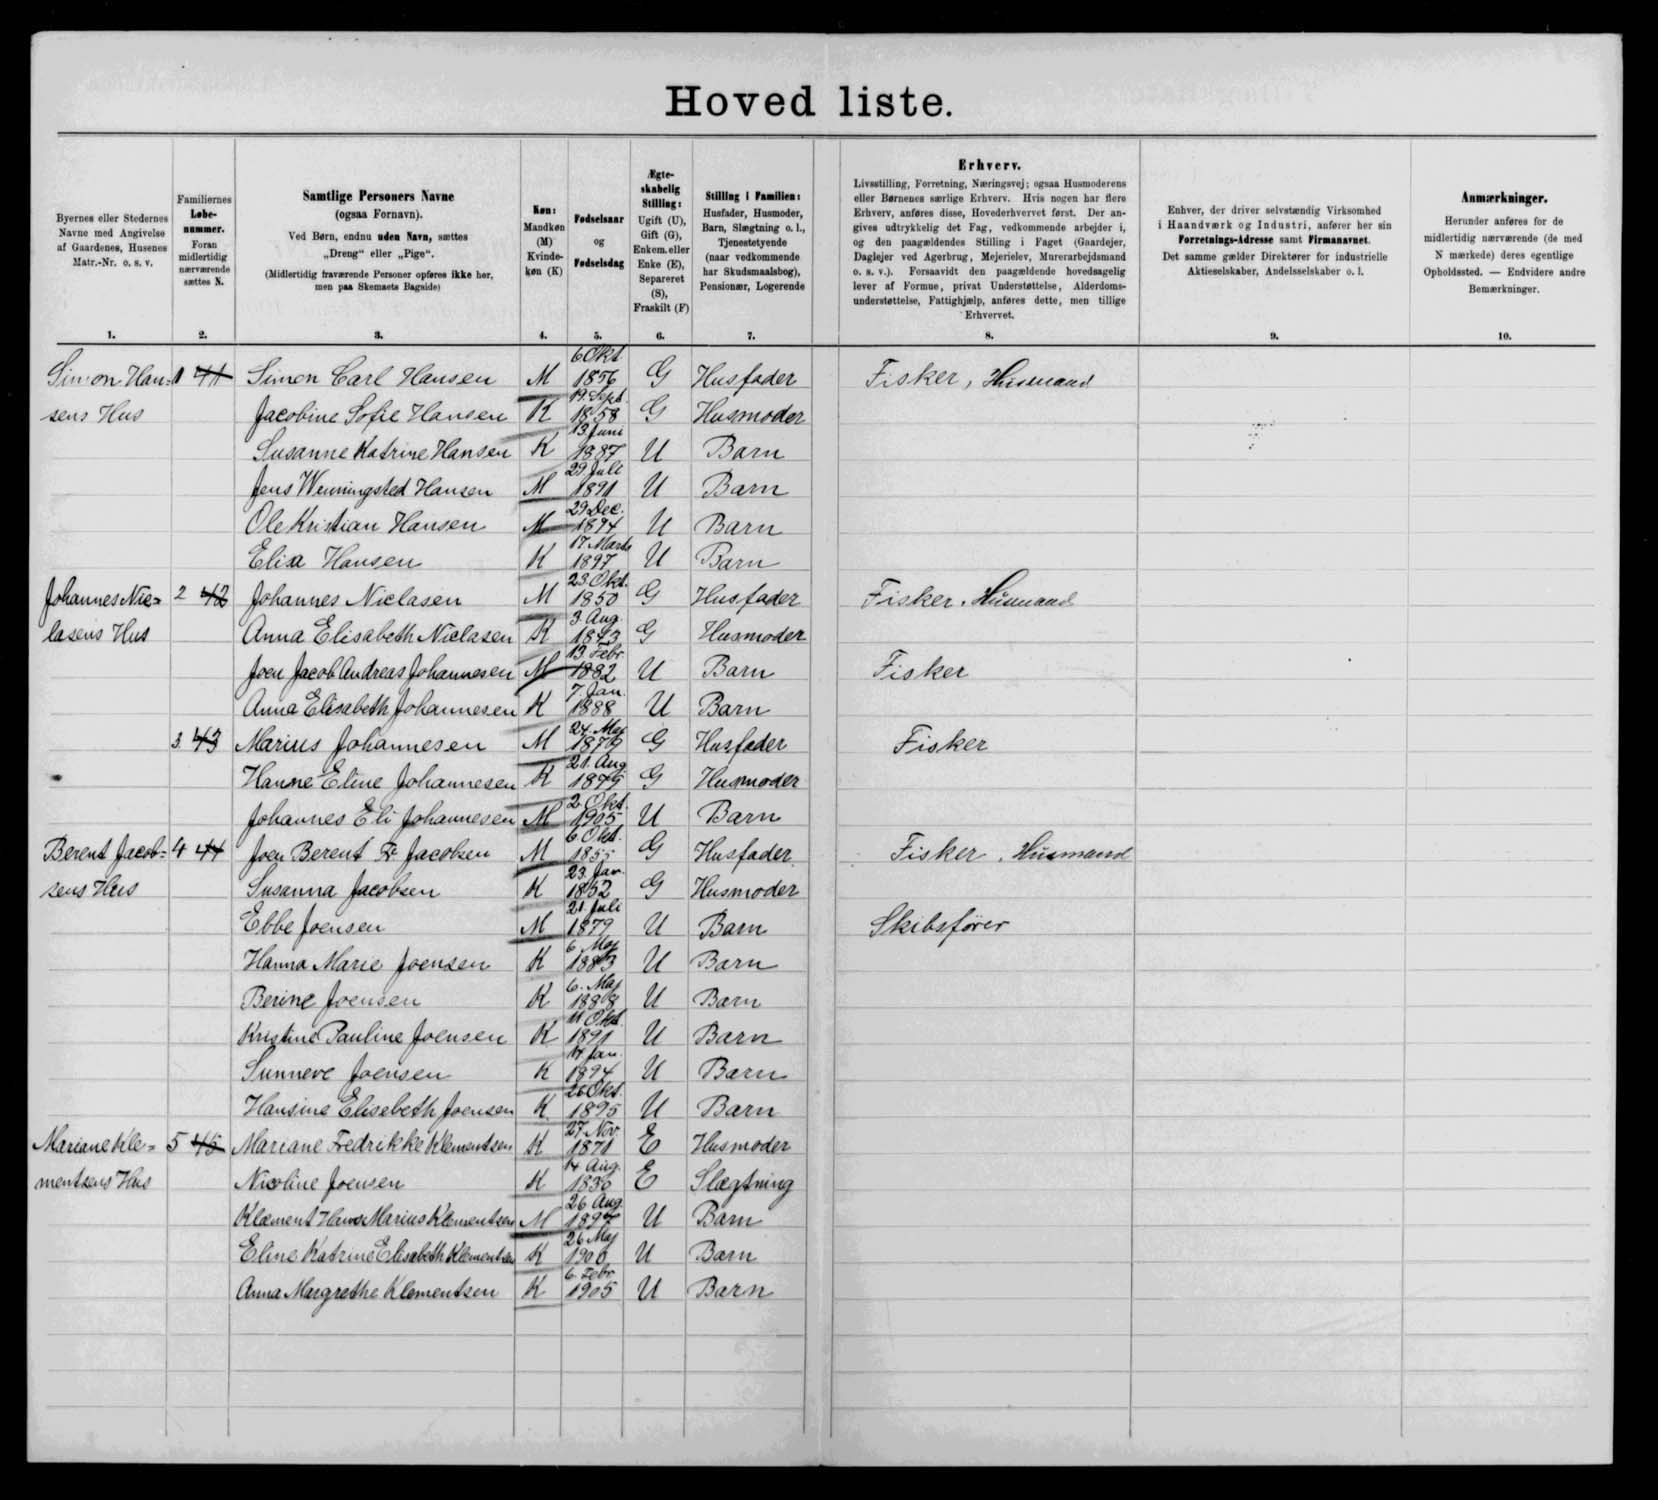 Hoved liste.
Byernes eller Stedernes
Navne med Angivelse
af Gaardenes, Husenes
Matr.-Nr. o. s. v.
1.
Familiernes
Løbe-
nummer.
Foran
midlertidig
nærværende
sættes N.
2.
Samtlige Personers Navne
(ogsaa Fornavn).
Ved Børn, endnu uden Navn, sættes
„Dreng“ eller „Pige“.
(Midlertidig fraværende Personer opføres ikke her,
men paa Skemaets Bagside)
3.
Køn:
Mandkøn
(M)
Kvinde-
køn (K)
4.
Fødselsaar
og
Fødselsdag
5.
Ægte-
skabelig
Stilling:
Ugift (U),
Gift (G),
Enkem. eller
Enke (E),
Separeret
(S),
Fraskilt (F)
6.
Stilling i Familien:
Husfader, Husmoder,
Barn, Slægtning o. l.,
Tjenestetyende
(naar vedkommende
har Skudsmaalsbog),
Pensionær, Logerende
7.
Erhverv.
Livsstilling, Forretning, Næringsvej; ogsaa Husmoderens
eller Børnenes særlige Erhverv. Hvis nogen har flere
Erhverv, anføres disse, Hovederhvervet først. Der an-
gives udtrykkelig det Fag, vedkommende arbejder i,
og den paagældendes Stilling i Faget (Gaardejer,
Daglejer ved Agerbrug, Mejerielev, Murerarbejdsmand
o. s. v.). Forsaavidt den paagældende hovedsagelig
lever af Formue, privat Understøttelse, Alderdoms-
understøttelse, Fattighjælp, anføres dette, men tillige
Erhvervet.
8.
Enhver, der driver selvstændig Virksomhed
i Haandværk og Industri, anfører her sin
Forretnings-Adresse samt Firmanavnet.
Det samme gælder Direktører for industrielle
Aktieselskaber, Andelsselskaber o. l.
9.
Anmærkninger.
Herunder anføres for de
midlertidig nærværende (de med
N mærkede) deres egentlige
Opholdssted. — Endvidere andre
Bemærkninger.
10.
Simon Han- 1 41 Simon Carl Hansen M 6 Okt. 1856 G Husfader Fisker, Husmand
sens Hus Jacobine Sofie Hansen K 19. Sept. 1858 G Husmoder
Susanne Katrine Hansen K 13 Juni 1887 U Barn
Jens Wenningsted Hansen M 29 Juli 1891 U Barn
Ole Kristian Hansen M 29 Dec. 1894 U Barn
Elisa Hansen K 17 Marts 1897 U Barn
Johannes Nic= 2 42 Johannes Niclasen M 23. Okt. 1850 G Husfader Fisker, Husmand
lasens Hus Anna Elisabeth Niclasen K 3. Aug. G Husmoder
Joen Jacob Andreas Johannesen M 13. Febr. 1882 U Barn Fisker
Anna Elisabeth Johannesen K 7. Jan. 1888 U Barn
3. 43 Marius Johannesen M 24. Maj 1879 G Husfader Fisker
Hanne Eline Johannesen K 21. Aug G Husmoder
Johannes Eli Johannesen M 2 Okt. 1905 U Barn
Berent Jacob= 4 44 Joen Berent Fr Jacobsen M 6 Okt. 1855 G Husfader Fisker, Husmand
sens Hus Susanna Jacobsen K 23. Jan. 1852 G Husmoder
Ebbe Joensen M 21. Juli 1879 U Barn Skibsfører
Hanna Marie Joensen K 6 Maj 1883 U Barn
Berine Joensen K 6. Maj 1888 U Barn
Kristine Pauline Joensen K 11 Okt. 1891 U Barn
Sunneve Joensen K 14 Jan. 1894 U Barn
Hansine Elisebeth Joensen K 26 Okt. 1895 U Barn
Mariane Kle= 5 45 Mariane Fredrikke Klementsen K 27 Nov 1871 E Husmoder
mentsens Hus Nicoline Joensen K 14 Aug. E Slægtning
Klæment Hans Marius Klementsen M 26 Aug 1897 U Barn
Eline Katrine Elisabeth Klementsen K 26 Maj 1900 U Barn
Anna Margrethe Klementsen K 6. Febr 1905 U Barn